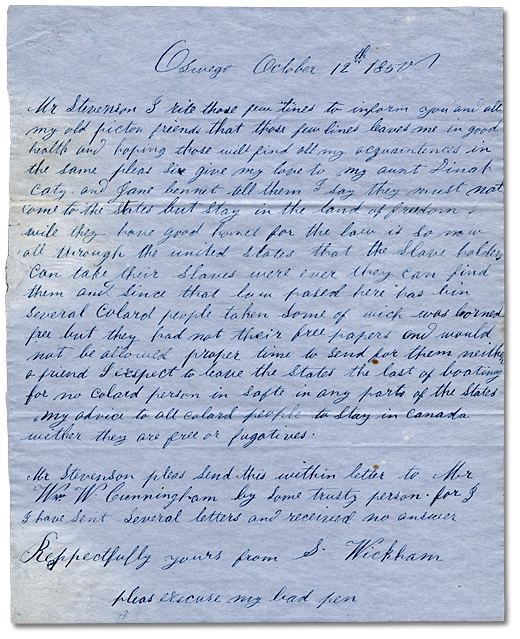 Oswego October 12th 1850
Mr Stevenson I rite those few lines to inform you and all
my old picton friends that those few lines leaves me in good
health and hoping those will find all my acquaintences in
the same pleas Sir give my love to my aunt Dinah
Caty and Jane bennet tell them I say they must not
come to the states but stay in the land of freedom
wile they have good homes for the law is so now
all through the united States that the Slave holders
can take their slaves were ever they can find
them and since that law pased here has bin
several Colard people taken some of wich was borned
free but they had not their free papers and would
not be allowed proper time to send for them neither
a friend I expect to leave the States the last of boating
for no colard person in safte in any parts of the States
my advice to all colard people to stay in Canada
wither they are free or fugatives.
Mr Stevenson pleas send this within letter to Mr
Wm W. Cunningham by some trusty person. for I
I have sent several letters and received no answer
Reppectfully yours from S. Wickham
pleas excuse my bad pen